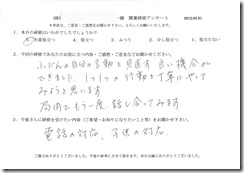 (株) 様 開業研修アンケート 2012.03.05
1. 本日の研修はいかがでしたでしょうか？
1. 大変役立つ 2. 役立つ 3. ふつう 4. 少し役立つ 5. 役立たない
2. 今回の研修であなたのお役に立つ内容・ご感想・ご意見などお聞かせください。
ふだんの自分の言動を見直す良い機会が
できました。1つ1つの言動を丁寧にやって
みようと思います。
局内でもう一度、話し合ってみます。
3. 今後さらに研修を受けたい内容
電話の対応、子供の対応、